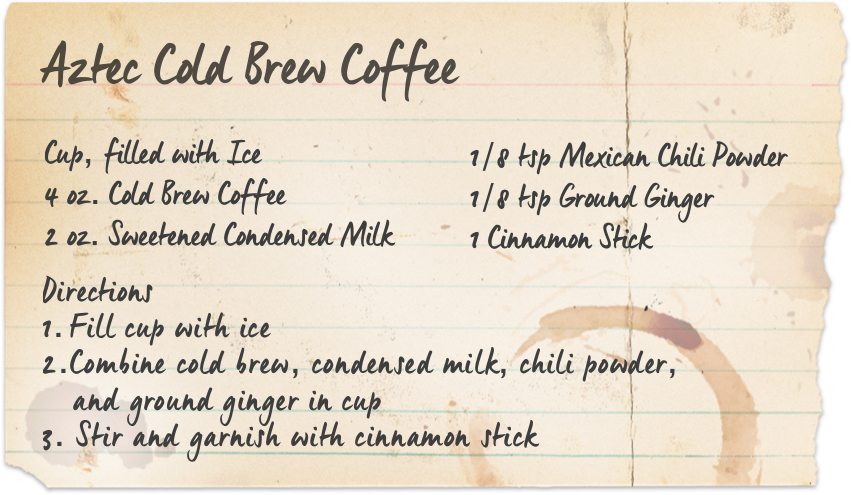 Aztec Cold Brew Coffee
Cup, filled with Ice
4 oz. Cold Brew Coffee
2 oz. Sweetened Condensed Milk
1/8 tsp Mexican Chili Powder
1/8 tsp Ground Ginger
1 Cinnamon Stick
Directions
1. Fill cup with ice
2.Combine cold brew, condensed milk, chili powder,
and ground ginger in cup
3. Stir and garnish with cinnamon stick